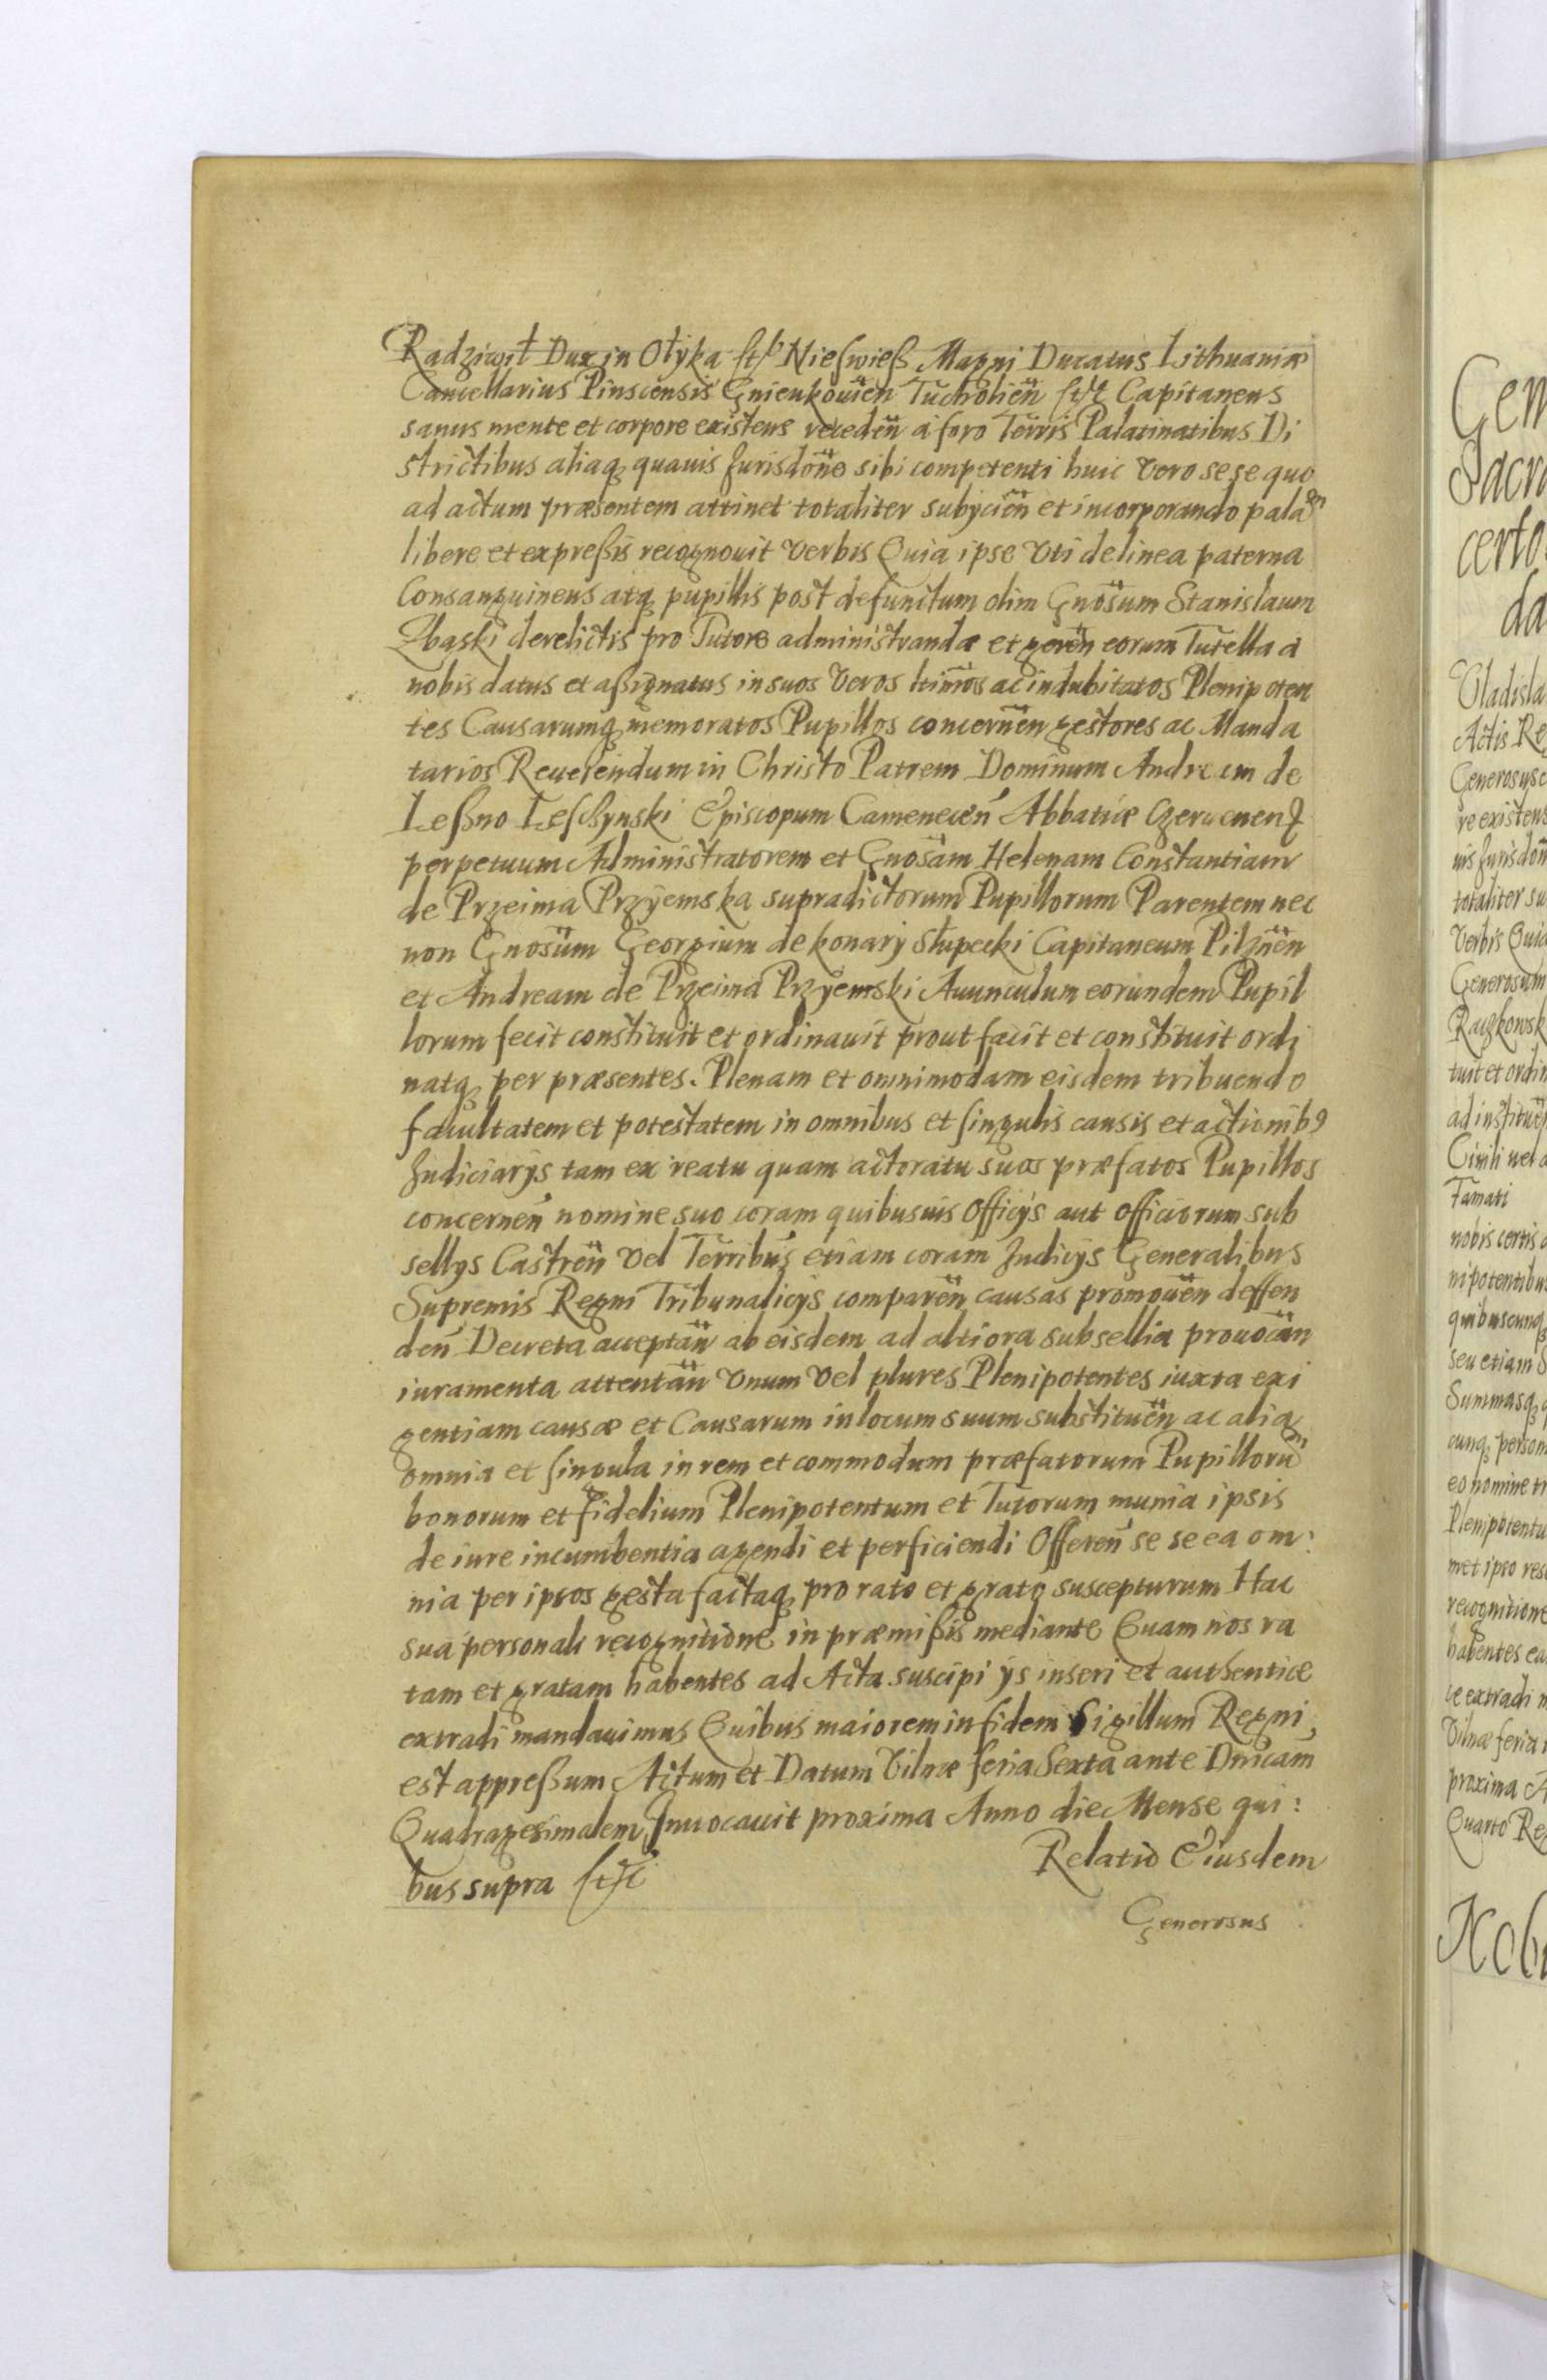 Radziwił Dux in Ołyka et Nieswiesz Magni Ducatus Lithuaniæ
Cancellarius Pinscensis Gnieukouien̄ Tucholien̄ etc Capitaneus
sanus mente et corpore existens receden̄ à foro Terris Palatinatibus Di
strictibus aliaq; quauis Jurisdōne sibi competenti huic Vero sese quo
ad actum præsentem attinet totaliter subijcien̄ et incorporando palā
libere et expreßis recognouit Verbis Quia ipse Vti de linea paterna
Consanguineus atq; pupillis post defunctum olim Gnōsum Stanislaum
Zbąski derelictis pro Tutore administrandæ et geren̄ eorum Tutella à
nobis datus et aßignatus in suos Veros ltimōs ac indubitatos Plenipoten
tes Causarumq; memoratos Pupillos concernen̄ gestores ac Manda
tarios Reuerendum in Christo Patrem Dominum Andream de
Leßno Leschynski Episcopum Camenecen̄ Abbatiæ Czerwenen̄
perpetuum Administratorem et Gnōsam Helenam Constantiam
de Przeima Przyemska supradictorum Pupillorum Parentem nec
non Gnōsum Georgium de konary Słupecki Capitaneum Pilznen̄
et Andream de Przeima Przyemski Auunculum eorundem Pupil
lorum fecit constituit et ordinauit prout facit et constituit ordi
natq; per præsentes. Plenam et omnimodam eisdem tribuendo
facultatem et potestatem in omnibus et singulis causis et actionib9
Judiciarijs tam ex reatu quam actoratu suos præfatos Pupillos
concernen̄ nomine suo coram quibusuis Officijs aut Officiorum sub
sellijs Castren̄ Vel Terribus etiam coram Judicijs Generalibus
Supremis Regni Tribunalicijs comparen̄ causas promouen̄ deffen
den̄ Decreta acceptan̄ ab eisdem ad altiora subsellia prouocan̄
iuramenta attentan̄ Vnum Vel plures Plenipotentes iuxta exi
gentiam causæ et Causarum in locum suum substituen̄ ac alia
omnia et singula in rem et commodum præfatorum Pupillorū
bonorum et fidelium Plenipotentum et Tutorum munia ipsis
de iure incumbentia agendi et perficiendi Offeren̄ se se ea om:
nia per ipsos gesta factaq; pro rato et grato suscepturum Hac
sua personali recognitione in præmißis mediante Quam nos ra
tam et gratam habentes ad Acta suscipi ijs inseri et authentice
extradi mandauimus Quibus maiorem in fidem Sigillum Regni
est appreßum Actum et Datum Vilnæ feria Sexta ante Dnicam
Quadragesimalem Inuocauit proxima Anno die Mense qui:
bus supra etc
Relatio Eiusdem
Generosus
Sacra
certo
da
Vladisla
Actis Re
re existens
totaliter su
Verbis Quia
Generosum
Raczkowsk
tuit et ordin
ad instituen̄
Ciuili uel a
Famati
nobis certis
nipotentibus
quibuscunq;
seu etiam S
Summasq;
cunq; person
eo nomine tr
Plenipotentu
met ipso res
recognitione
habentes ea
ce extradi m
Vilnæ feria
proxima A
Quarto Re
Nobi